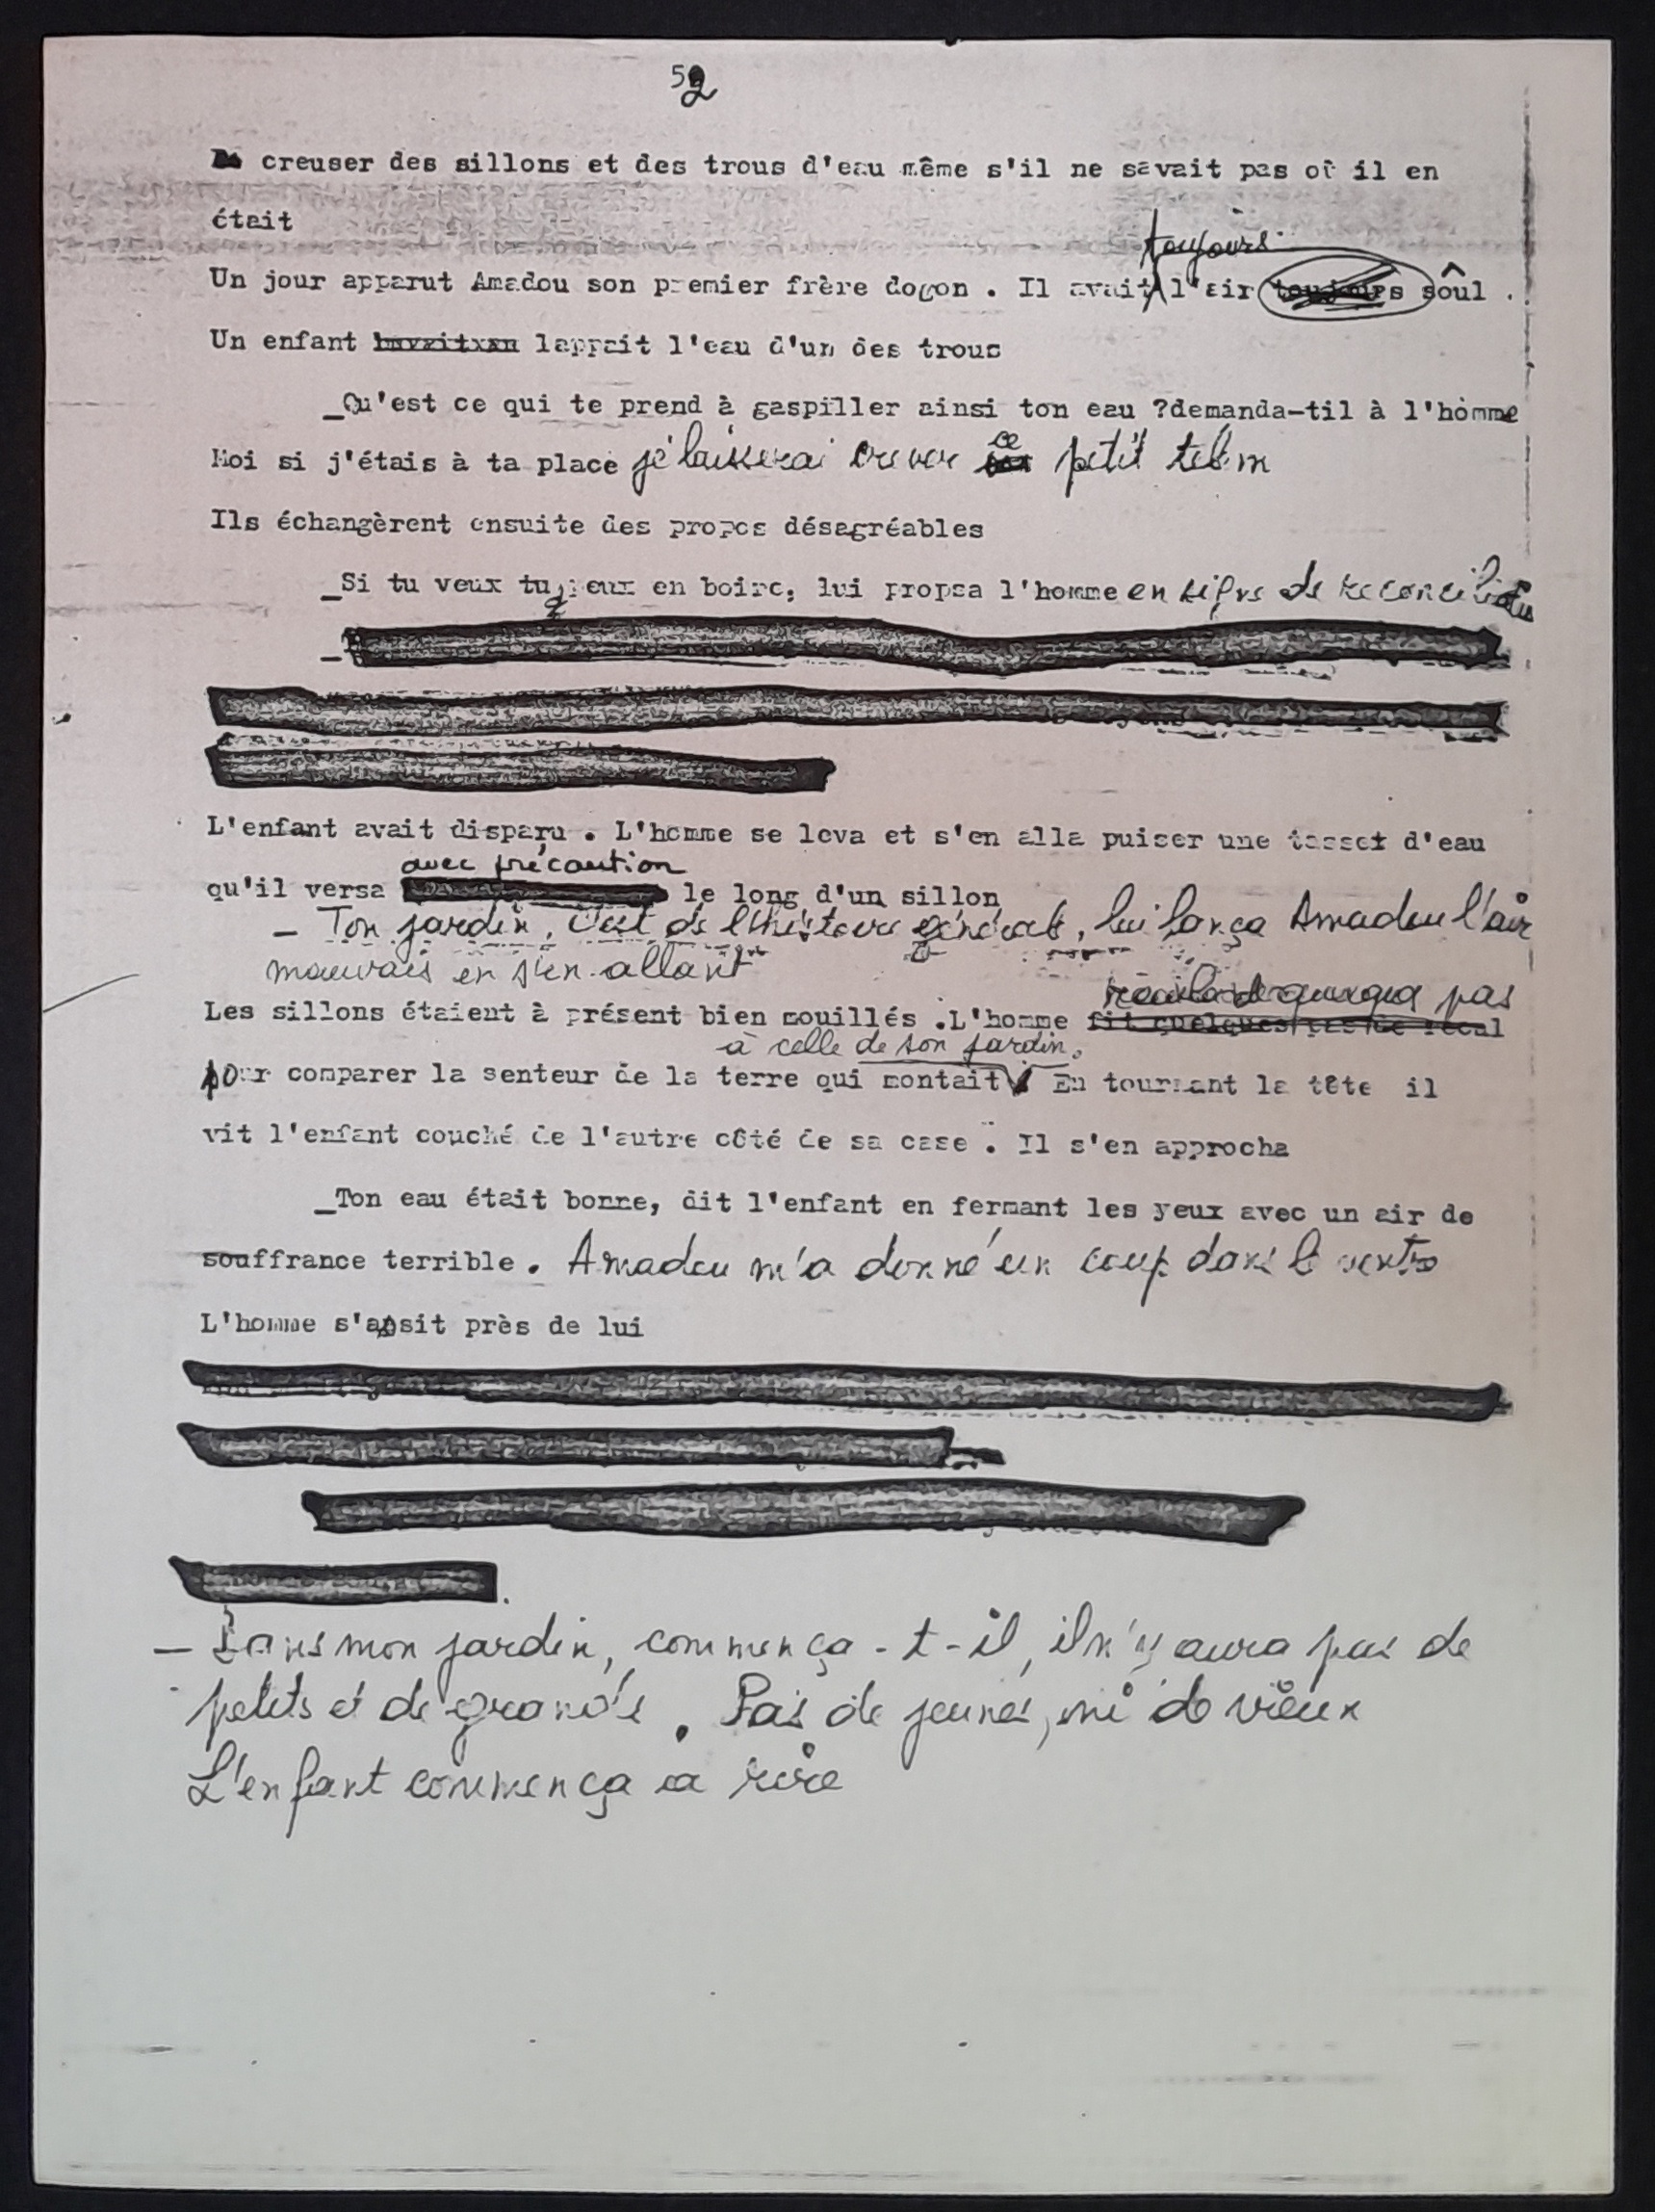 52
creuser des sillons et des trous d'eau même s'il ne savait pas où il en
était
toujours
Un jour apparut Amadou son premier frère dogon . Il avait l'air toujours sôul .
Un enfant lappait l'eau d'un des trous
_Qu'est ce qui te prend à gaspiller ainsi ton eau ?demanda-til à l'homme
ce
Moi si j'étais à ta place je laisserai crever petit
Ils échangèrent ensuite des propos désagréables
_Si tu veux tu peux en boire, lui propsa l'homme en signe de
L'enfant avait disparu . L'homme se leva et s'en alla puiser une d'eau
avec précaution
qu'il versa le long d'un sillon
_ Ton jardin, c'est de l'histoire générale, lui lança Amadou l'air
mauvais en s'en allant
pas
Les sillons étaient à présent bien mouillés .L'homme fit quelques pas de recul
à celle de son jardin.
pour comparer la senteur de la terre qui montait En tournant la tête il
vit l'enfant couché de l'autre côté de sa case . Il s'en approcha
_Ton eau était bonne, dit l'enfant en fermant les yeux avec un air de
souffrance terrible . Amadou m'a donné un coup dans le ventre
L'homme s'assit près de lui
_ Dans mon jardin, commença-t-il, il n'y aura pas de
petits et de grands . Pas de jeunes, ni de vieux
L'enfant commença à rire